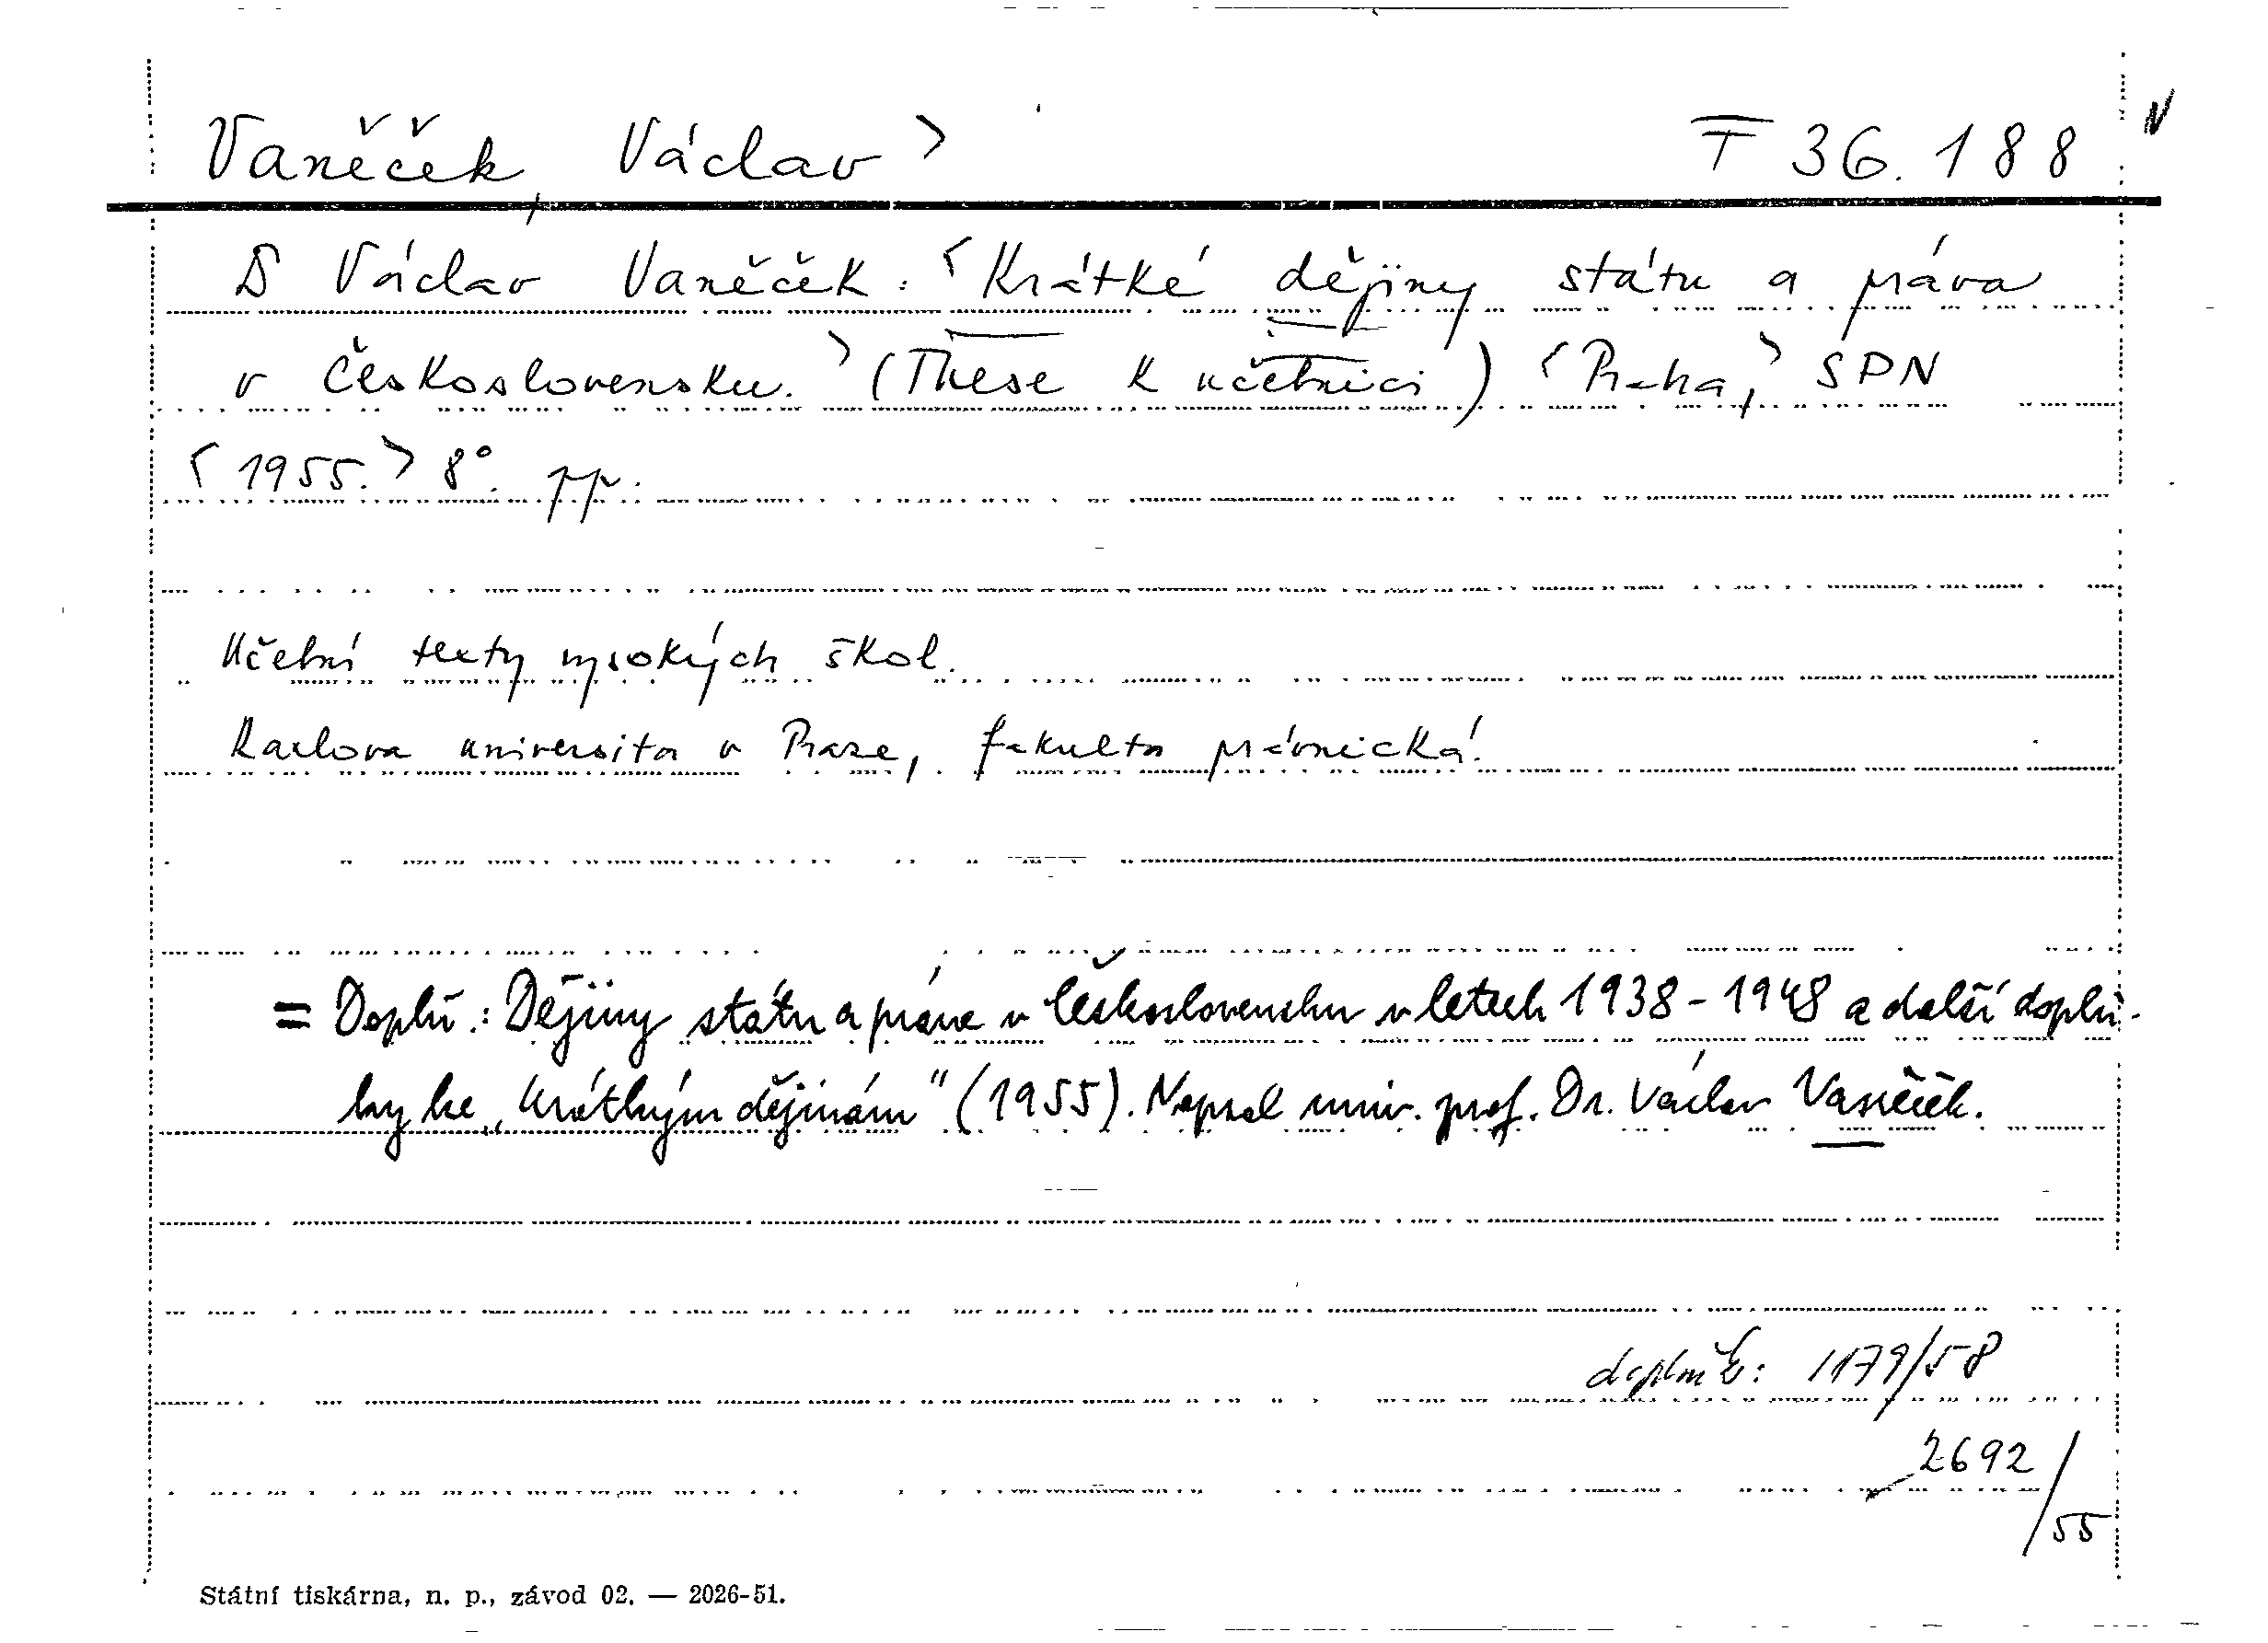 Vaněček, Václav > T 36.188
Václav Vaněček: <Krátké dějiny státu a práva
v Československu.> (These k učebnici) <Praha,> SPN
<1955.> 8°. pp.
Učební texty vysokých škol.
Karlova universita v Praze, fakulta právnická.
= Doplň.: Dějiny státu a práva v Československu v letech 1938-1948 a další doplň-
ky ke „Krátkým dějinám" (1955). Napsal univ. prof. Dr. Václav Vaněček.
doplněk: 1179/58
2692/55
Státní tiskárna, n. p., závod 02. — 2026-51.